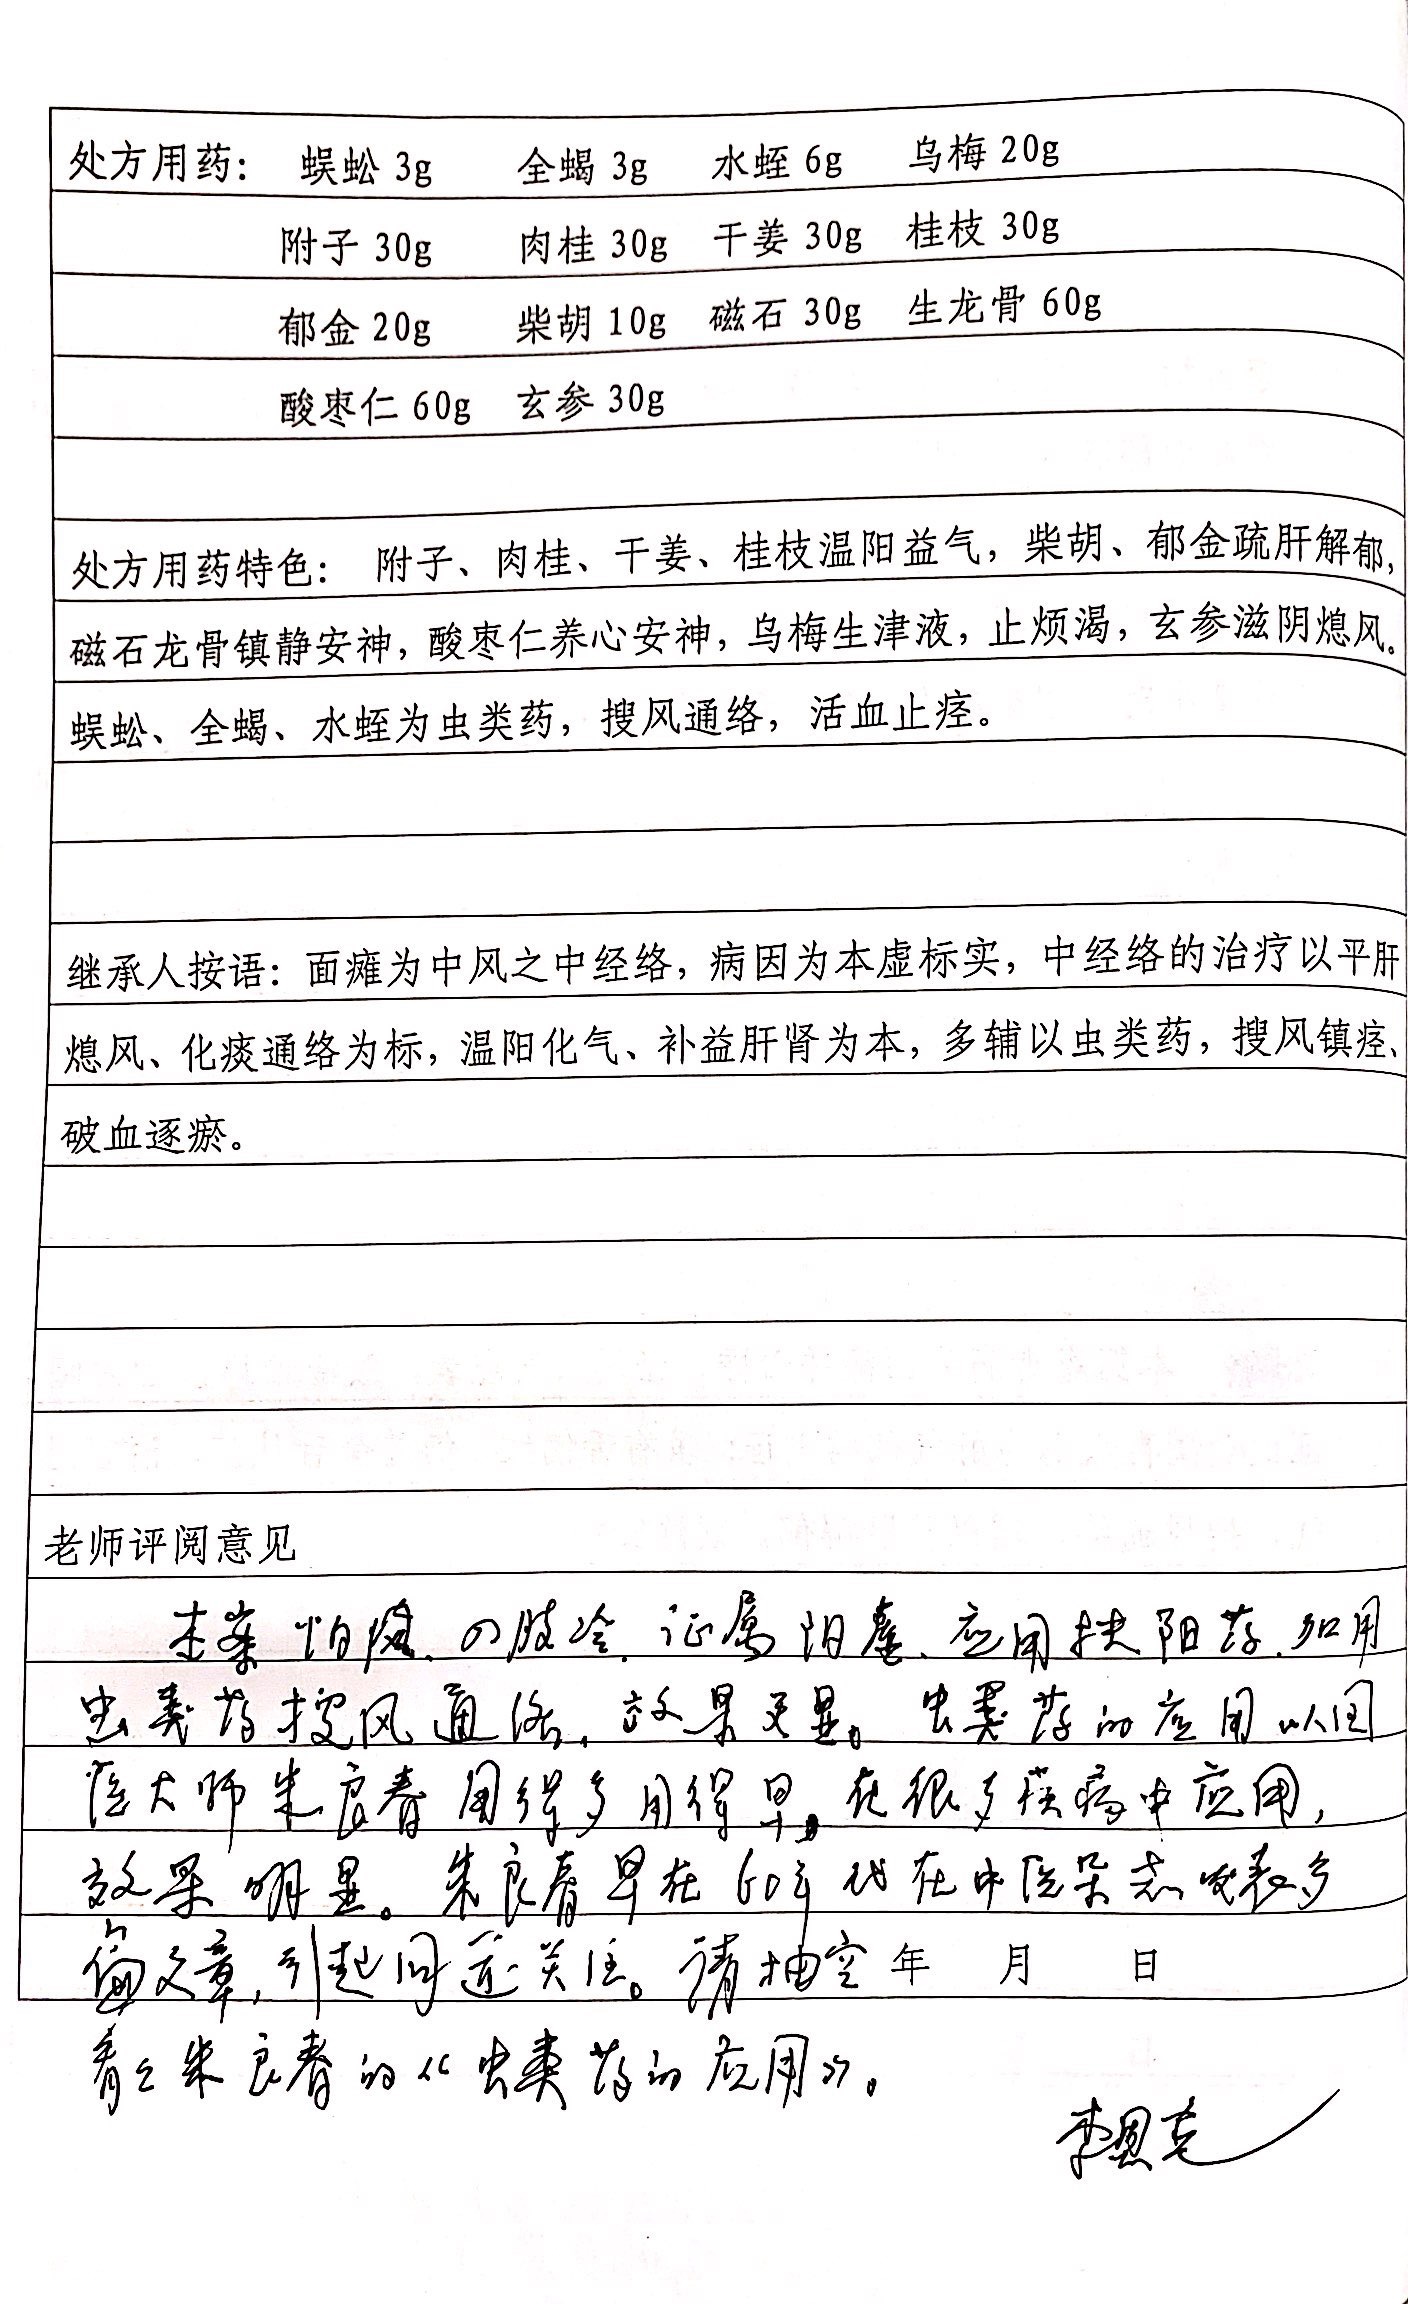 处方用药： 蜈蚣 3g 全蝎 3g 水蛭 6g 乌梅 20g
附子 30g 肉桂 30g 干姜 30g 桂枝 30g
郁金 20g 柴胡 10g 磁石 30g 生龙骨 60g
酸枣仁 60g 玄参 30g
处方用药特色： 附子、肉桂、干姜、桂枝温阳益气，柴胡、郁金疏肝解郁，
磁石龙骨镇静安神，酸枣仁养心安神，乌梅生津液，止烦渴，玄参滋阴熄风。
蜈蚣、全蝎、水蛭为虫类药，搜风通络，活血止痉。
继承人按语：面瘫为中风之中经络，病因为本虚标实，中经络的治疗以平肝
熄风、化痰通络为标，温阳化气、补益肝肾为本，多辅以虫类药，搜风镇痉、
破血逐瘀。
老师评阅意见
本案怕冷、四肢冷，证属阳虚，应用扶阳药，加用
虫类药搜风通络，效果更显。虫类药的应用以国
医大师朱良春用得多用得早。在很多疾病中应用，
效果明显。朱良春早在60年代在中医杂志发表多
篇文章，引起同道关注。请抽空 年 月 日
看看朱良春的《虫类药的应用》。
李恩克